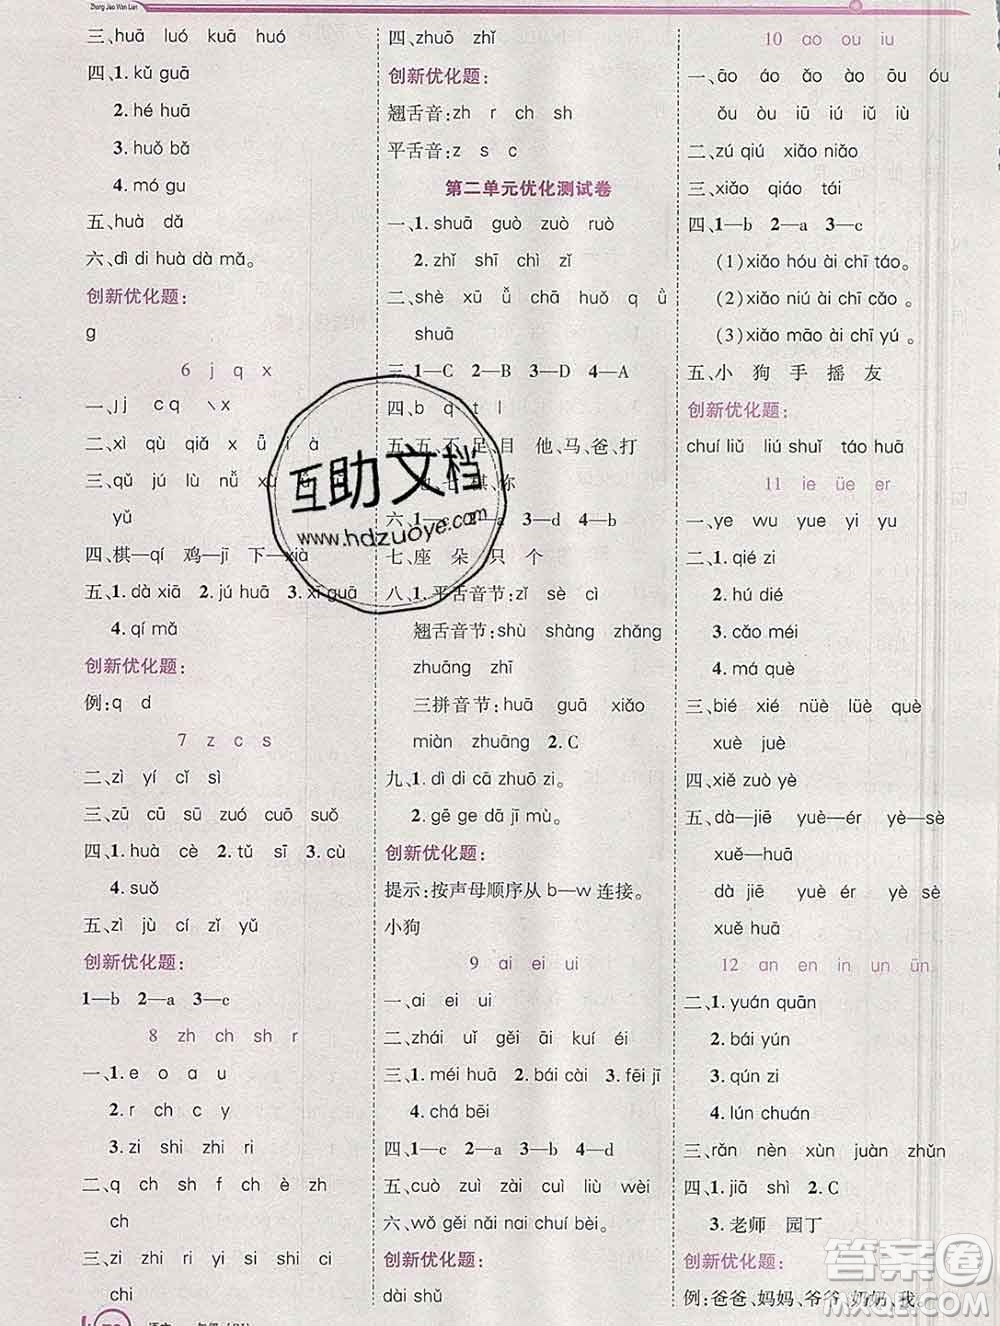 Zhong Jiao Wan Lian
三、huā luó kuā huó
四、1.kǔ guā
2.hé huā
3.huǒ bǎ
4.mó gu
五、huà dǎ
六、dì di huà dà mǎ。
创新优化题:
g
6 j q x
二、xì qù qiǎ x
三、qǔ jú lù nǚ xù
yǔ
四、棋—qí 鸡—jī 下—xià
五、1.dà xiā 2.jú huā 3.xī guā
4.qí mǎ
创新优化题:
例:q d
7 z c s
二、zì yí cǐ sì
三、zū cū sū zuó cuó suǒ
四、1.huà cè 2.tǔ sī 3.cù
4.suǒ
五、zì jù cí zǐ yǔ
创新优化题:
1—b 2—a 3—c
8 zh ch sh r
一、1.e o a u
2.r ch c y
3.zi shi zhi ri
二、q ch sh f ch è zh
ch
三、zi zhi ri yi si shi ci
chi
四、zhuō zhǐ
创新优化题:
翘舌音:zh r ch sh
平舌音:z s c
第二单元优化测试卷
一、1.shuā guò zuò ruò
2.zhǐ shī chì zǐ
二、shè xū ǚ chā huǒ q ǜ
shuā
三、1—C 2—B 3—D 4—A
四、b q t l
五、五、不、足、目 他、马、爸、打
七、棋、你
六、1—c 2—a 3—d 4—b
七、座 朵 只 个
八、1.平舌音节:zǐ sè cì
翘舌音节:shù shàng zhǎng
zhuāng zhī
三拼音节:huā guā xiǎo
miàn zhuāng 2.C
九、1.dì di cā zhuō zi。
2.gē ge dā jī mù。
创新优化题:
提示:按声母顺序从 b—w 连接。
小狗
9 ai ei ui
一、ai ei ui
二、zhái uǐ gěi āi kuí éi
三、1.méi huā 2.bái cài 3.fēi jī
4.chá bēi
四、1—c 2—a 3—b 4—d
五、cuò zuì zài cuī liù wèi
六、wǒ gěi nǎi nai chuí bèi。
创新优化题:
dài shǔ
10 ao ou iu
一、āo áo ǎo ào ōu óu
ǒu òu iū iú iǔ iù
二、zú qiú xiǎo niǎo
三、xiǎo qiáo tái
四、1—b 2—a 3—c
(1)xiǎo hóu ài chī táo。
(2)xiǎo niú ài chī cǎo 。
(3)xiǎo māo ài chī yú 。
五、小 狗 手 摇 友
创新优化题:
chuí liǔ liú shuǐ táo huā
11 ie üe er
一、ye wu yue yi yu
二、1.qié zi
2.hú dié
3.cǎo méi
4.má què
三、bié xié nüè lüè què
xuè juè
四、xiě zuò yè
五、dà—jiē yuè—ér yè—sè
xuě—huā
dà jiē yuè ér yè sè
xuě huā
12 an en in un ün
二、1.yuán quān
2.bái yún
3.qún zi
4.lún chuán
三、rǎn nèn xùn juàn zhǔn
四、1.jiā shì 2.C
3.老师 园丁
创新优化题:
例:爸爸、妈妈、爷爷、奶奶、我。
互助文档
www.hdzuoye.com
答案圈